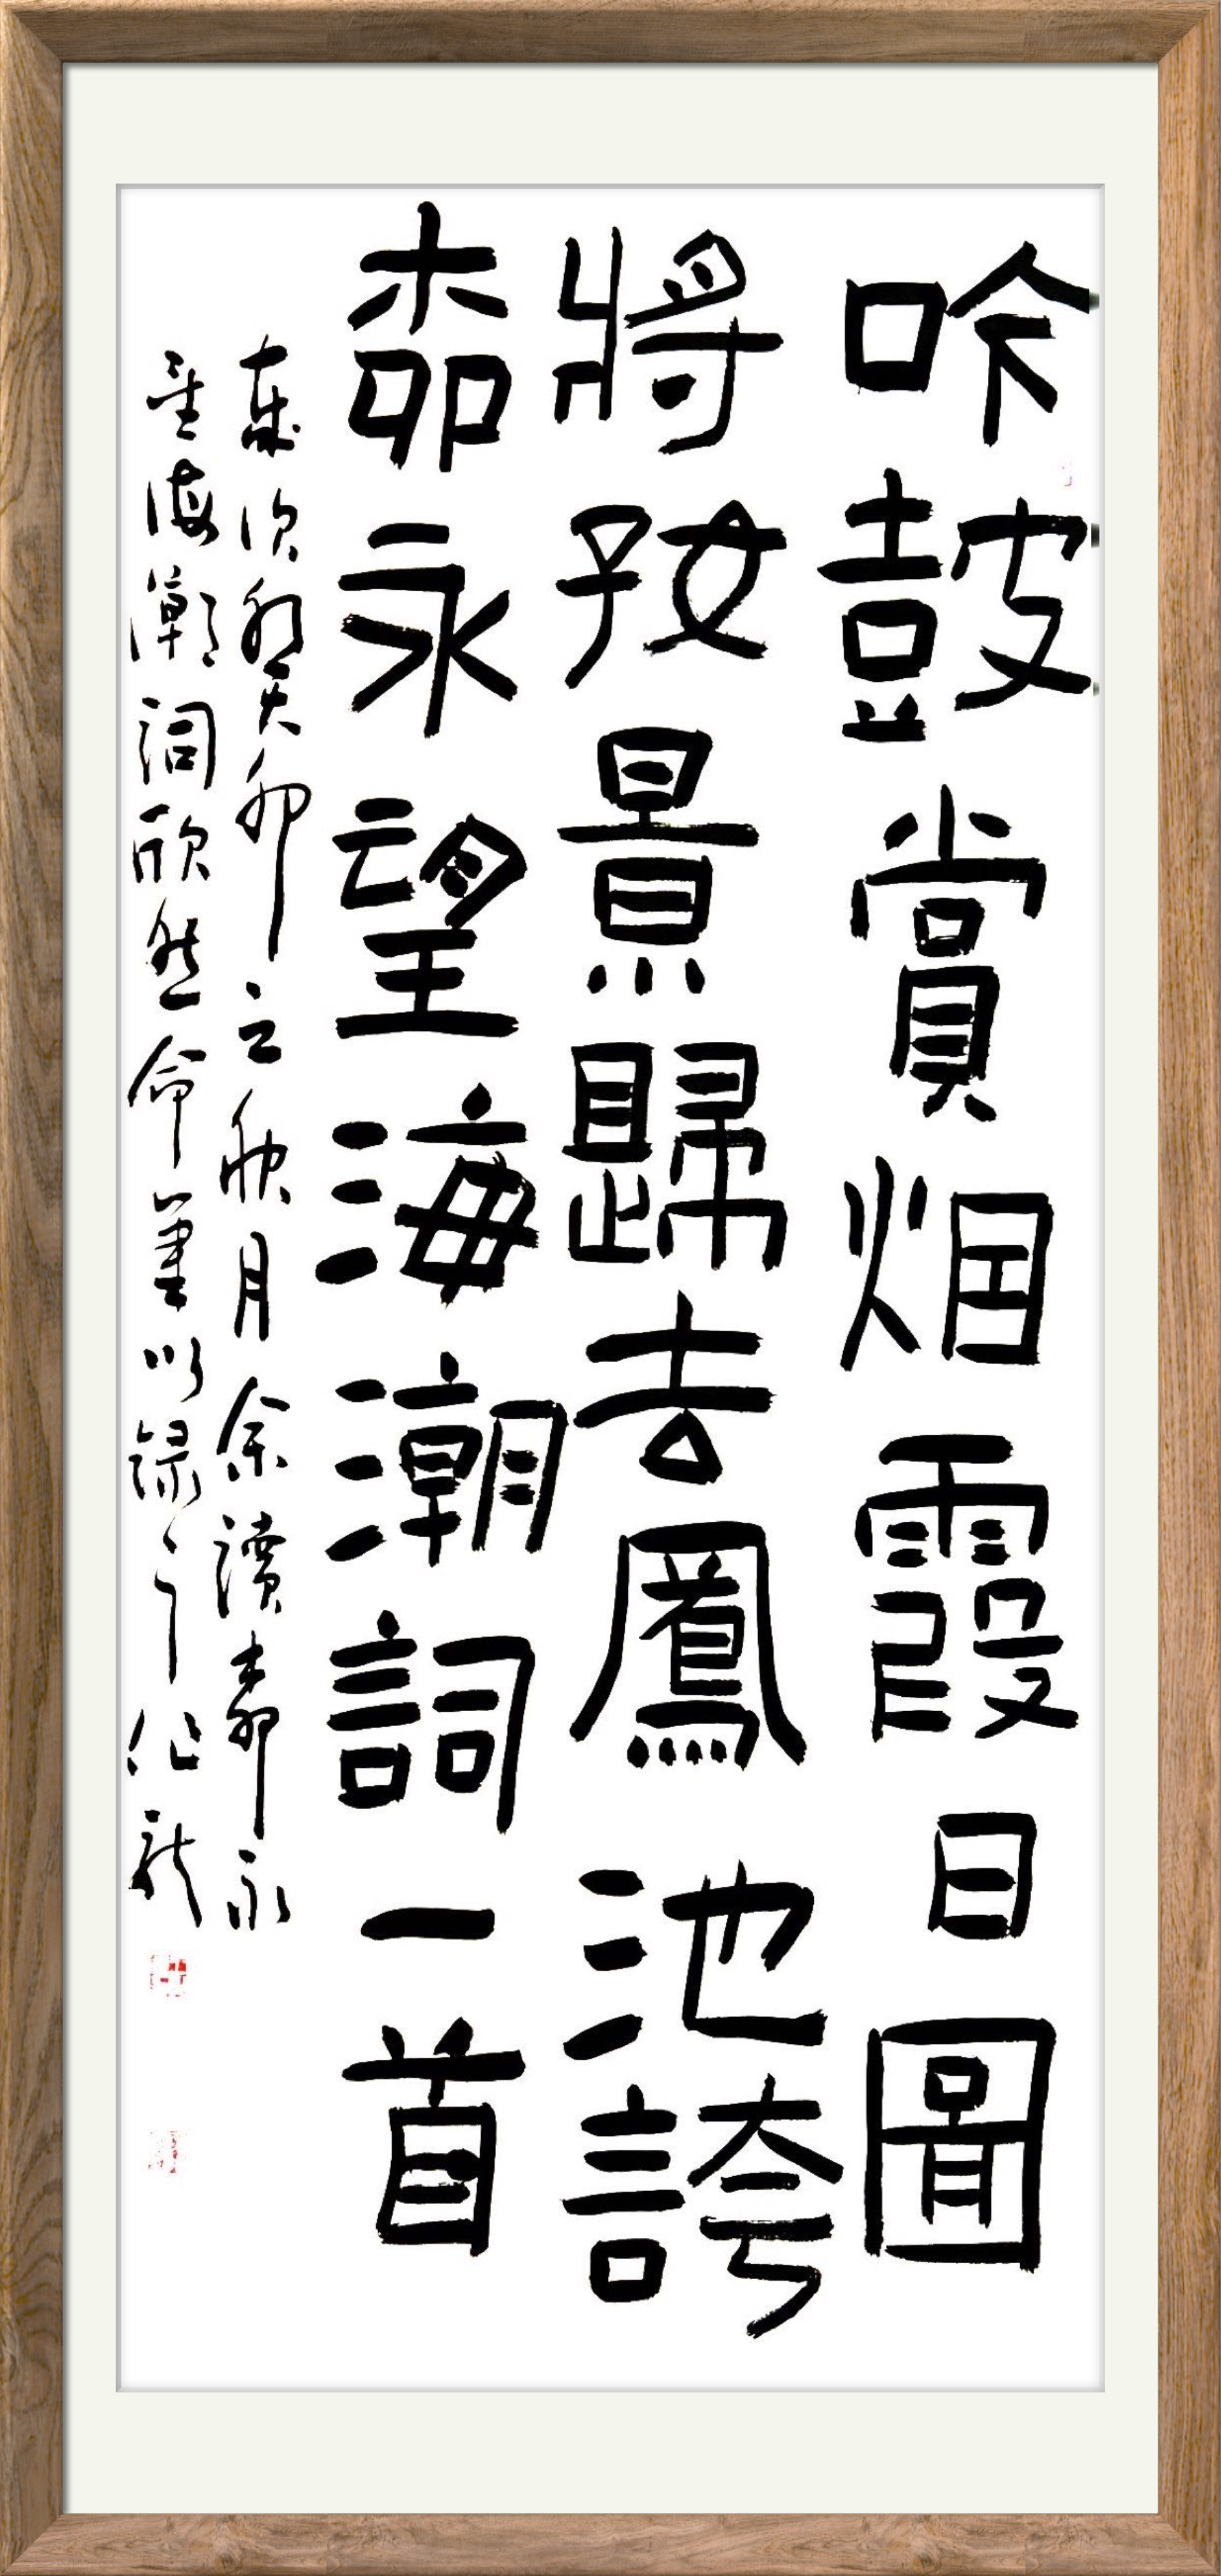 吟皷賞烟霞日圖
將好景歸去鳳池誇
柳永望海潮詞一首
歲次癸卯之秋月余讀柳永
望海潮詞欣然命筆以錄